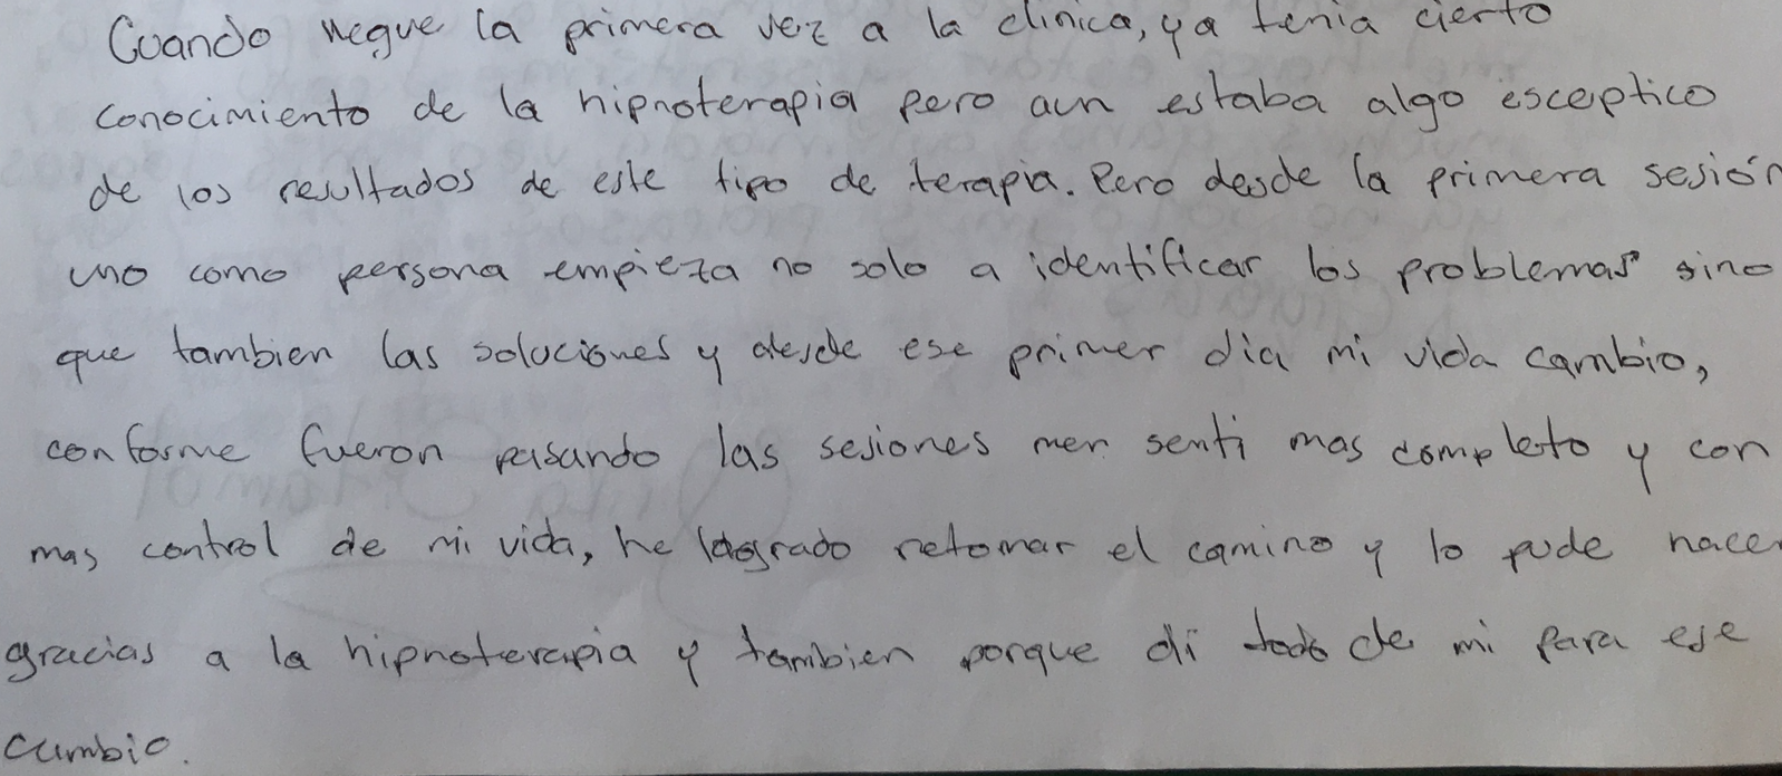 Cuando llegue la primera vez a la clinica, ya tenia cierto
conocimiento de la hipnoterapia pero aun estaba algo esceptico
de los resultados de este tipo de terapia. Pero desde la primera sesión
uno como persona empieza no solo a identificar los problemas sino
que tambien las soluciones y desde ese primer dia mi vida cambio,
conforme fueron pasando las sesiones mer senti mas completo y con
mas control de mi vida, he logrado retomar el camino y lo pude hacer
gracias a la hipnoterapia y tambien porque di todo de mi para ese
cambio.